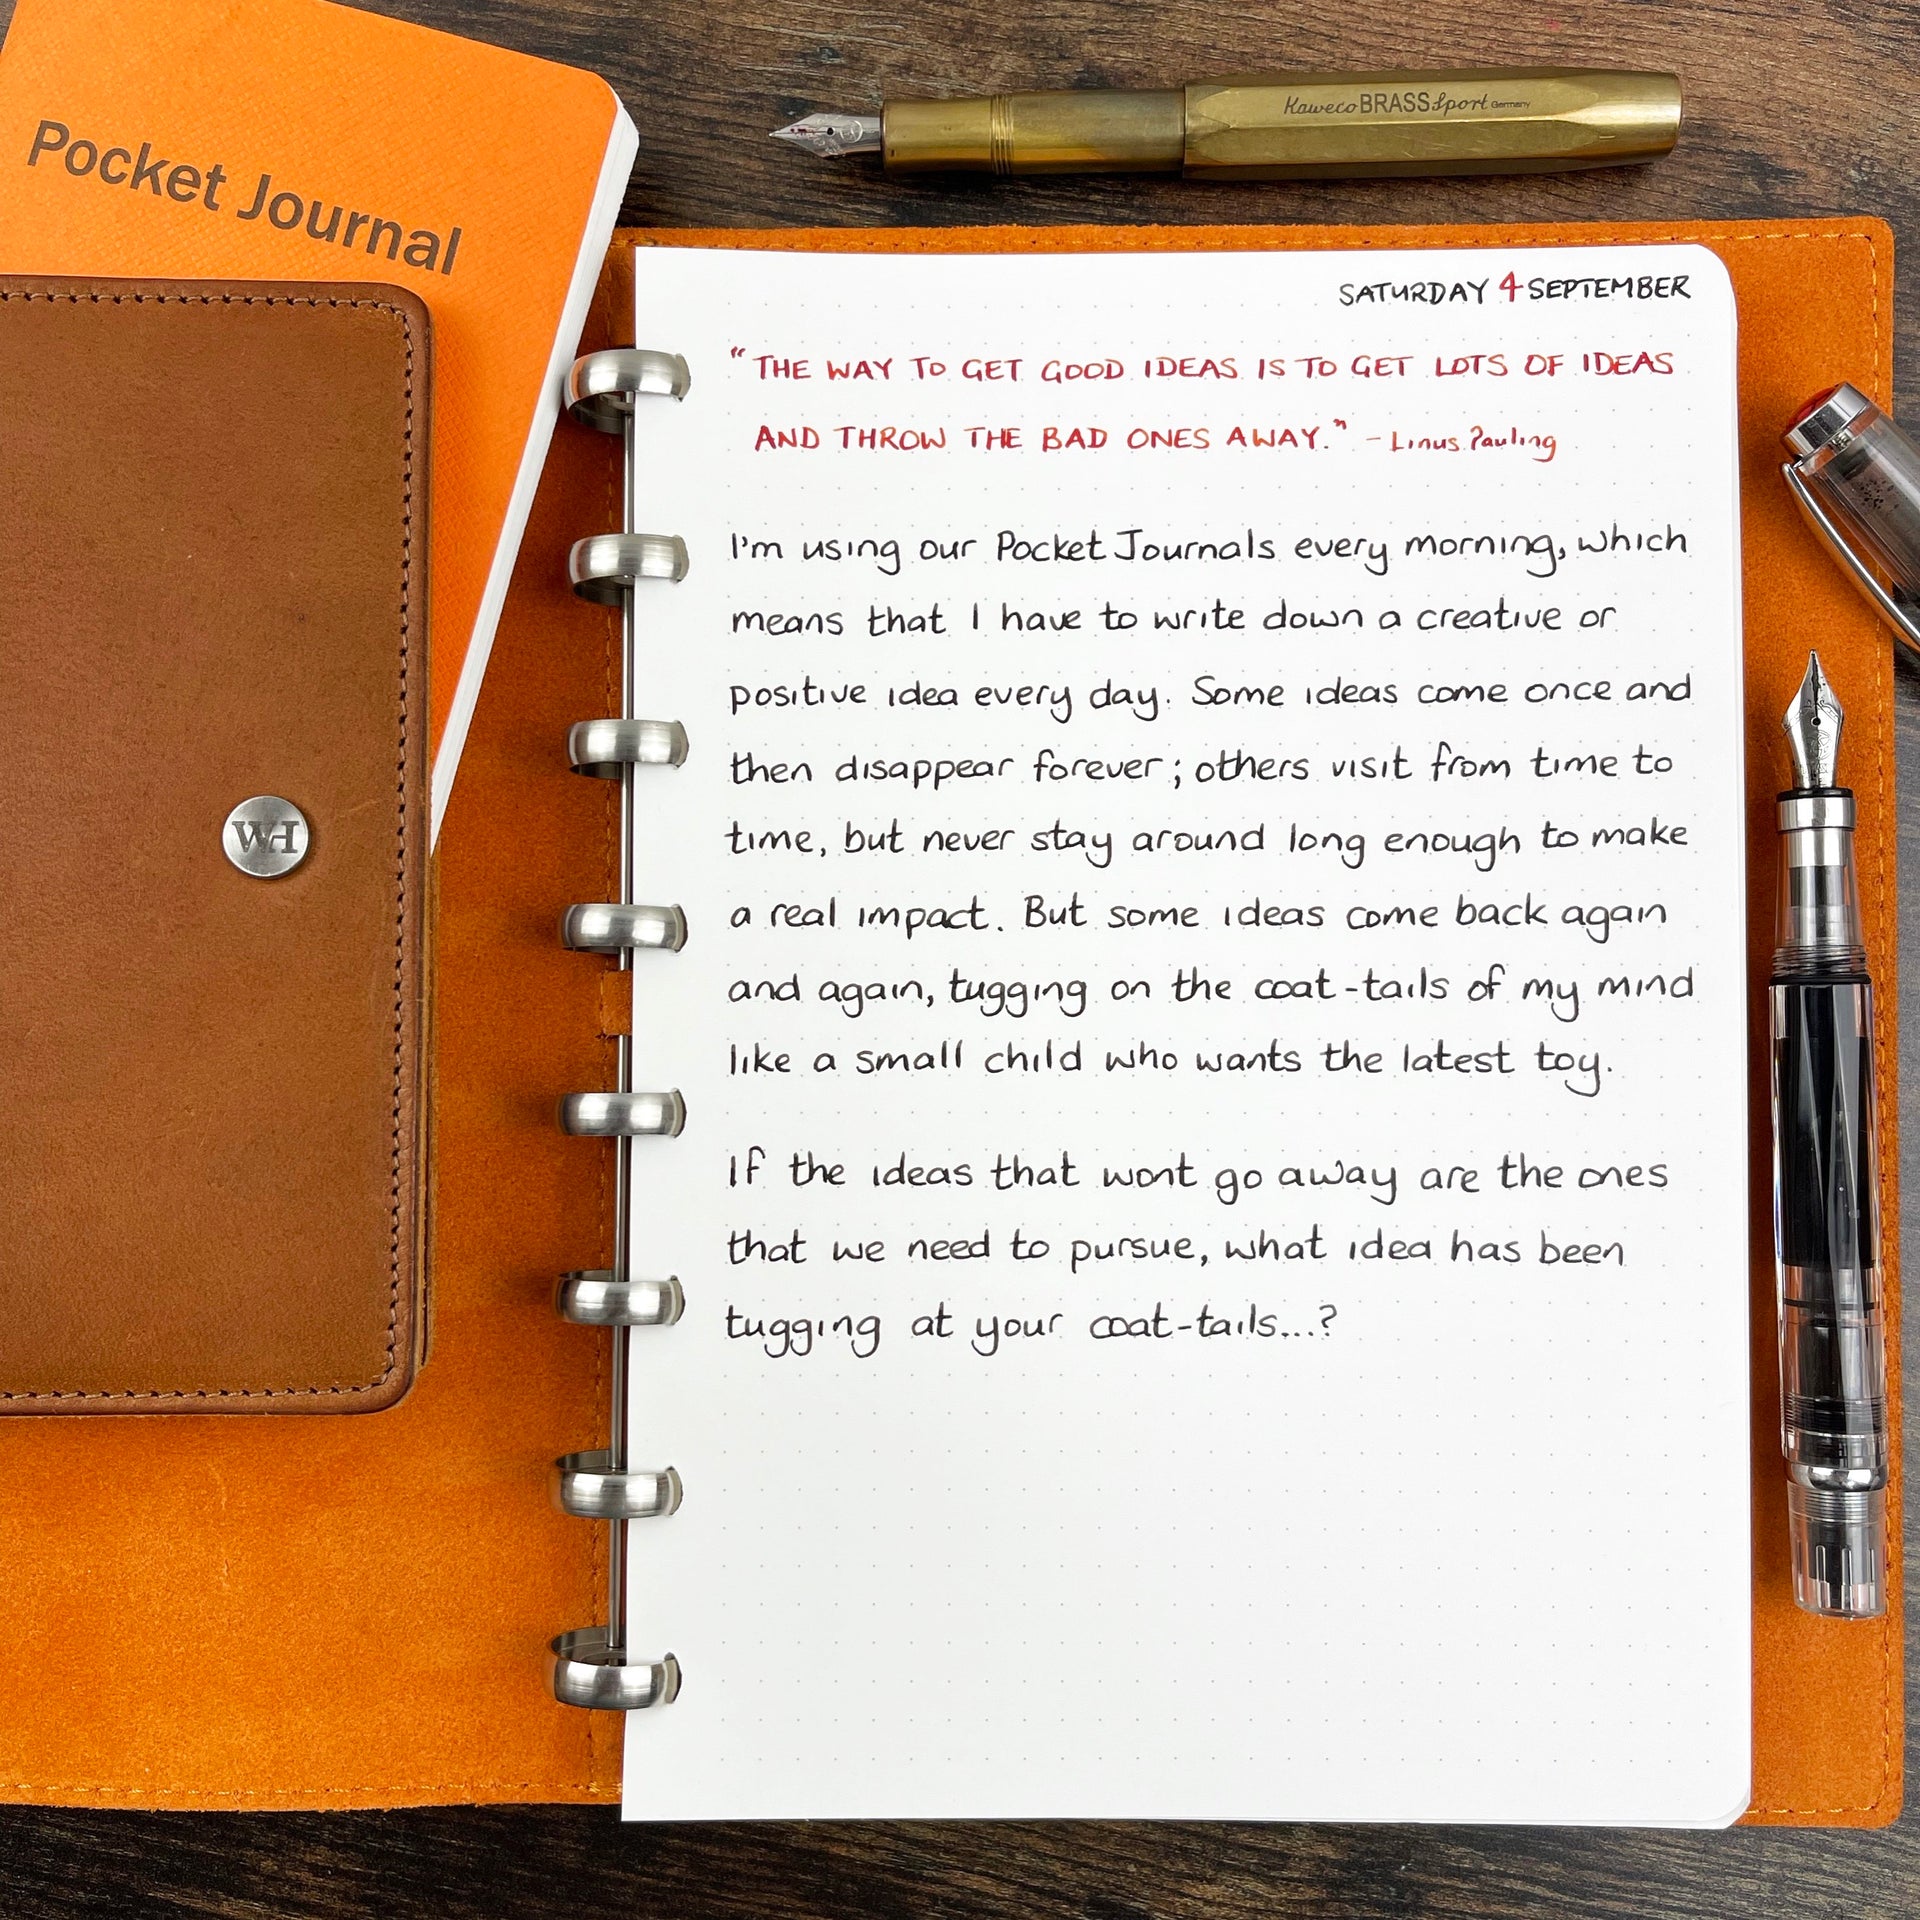 Pocket Journal
Kaweco BRASS Sport Germany
WH
SATURDAY 4 SEPTEMBER
"THE WAY TO GET GOOD IDEAS IS TO GET LOTS OF IDEAS
AND THROW THE BAD ONES AWAY." - Linus Pauling
I'm using our Pocket Journals every morning, which
means that I have to write down a creative or
positive idea every day. Some ideas come once and
then disappear forever; others visit from time to
time, but never stay around long enough to make
a real impact. But some ideas come back again
and again, tugging on the coat-tails of my mind
like a small child who wants the latest toy.
If the ideas that wont go away are the ones
that we need to pursue, what idea has been
tugging at your coat-tails...?